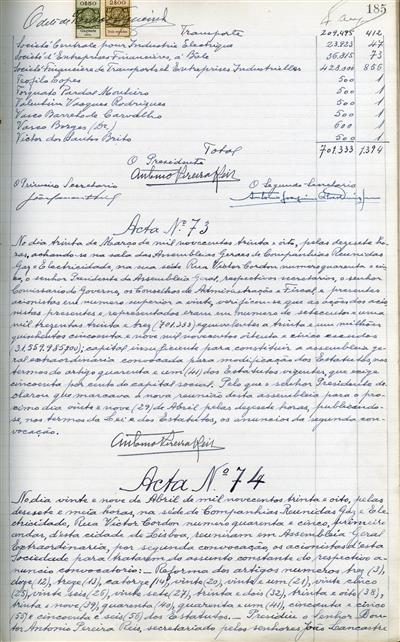 185
Transporte 209.495 412
Société Centrale pour Industrie Electrique 23.823 47
Société d'Entreprises Financières, à Bâle 36.815 73
Société Financière de Transports et Entreprises Industrielles
Teofilo Lopes 500 1
Torquato Pardal Monteiro 500 1
Valentim Vasques Rodrigues 500 1
Vasco Barreto de Carvalho 500 1
Vasco Borges (Dr)
Victor dos Santos Brito 500 1
Total 701.333 1.394
O Presidente
Antonio Pereira Reis
O Primeiro Secretario O Segundo Secretario
Acta Nº 73
No dia trinta de Março de mil novecentos trinta e oito, pelas dezesete ho-
ras, achando-se na sala das Assembleias Geraes de Companhias Reunidas
Gaz e Electricidade, na sua séde Rua Victor Cordon numero quarenta e cin-
co, o senhor Presidente da Assembleia Geral, respectivos secretarios, o senhor
Comissario do Governo, os Conselhos de Administração e Fiscal e presentes
acionistas em numero superior a vinte, verificou-se que as ações dos acio-
nistas presentes e representados eram em numero de setecentos e uma
mil trezentas trinta e tres (701.333) equivalentes a trinta e um milhões
quinhentos cincoenta e nove mil novecentos oitenta e cinco escudos
(31.559.985$00), capital insuficiente para constituir a assembleia ge-
ral extraordinaria convocada para modificação dos Estatutos, nos
termos do artigo quarenta e um (41) dos Estatutos vigentes, que exige
cincoenta por cento do capital social. Pelo que o senhor Presidente de-
clarou que marcava a nova reunião desta assembleia para o pro-
ximo dia vinte e nove (29) de Abril pelas dezesete horas, publicando-
se, nos termos da Lei e dos Estatutos, os anuncios da segunda con-
vocação.
Antonio Pereira Reis
Acta Nº 74
No dia vinte e nove de Abril de mil novecentos trinta e oito, pelas
dezesete e meia horas, na séde de Companhias Reunidas Gaz e Ele-
ctricidade, Rua Victor Cordon numero quarenta e cinco, primeiro
andar, desta cidade de Lisboa, reuniram em Assembleia Geral
Extraordinaria, por segunda convocação, os acionistas desta
Sociedade para tratarem do assunto constante do respectivo a-
nuncio convocatorio: Reforma dos artigos numeros tres (3),
doze (12), treze (13), catorze (14), vinte (20), vinte e um (21), vinte cinco
(25), vinte seis (26), vinte sete (27), trinta e dois (32), trinta e oito (38),
trinta e nove (39), quarenta (40), quarenta e um (41), cincoenta e cinco
(55) e cincoenta e seis (56) dos Estatutos. — Presidiu o senhor Dou-
tor Antonio Pereira Reis, secretariado pelos senhores José Lancastre